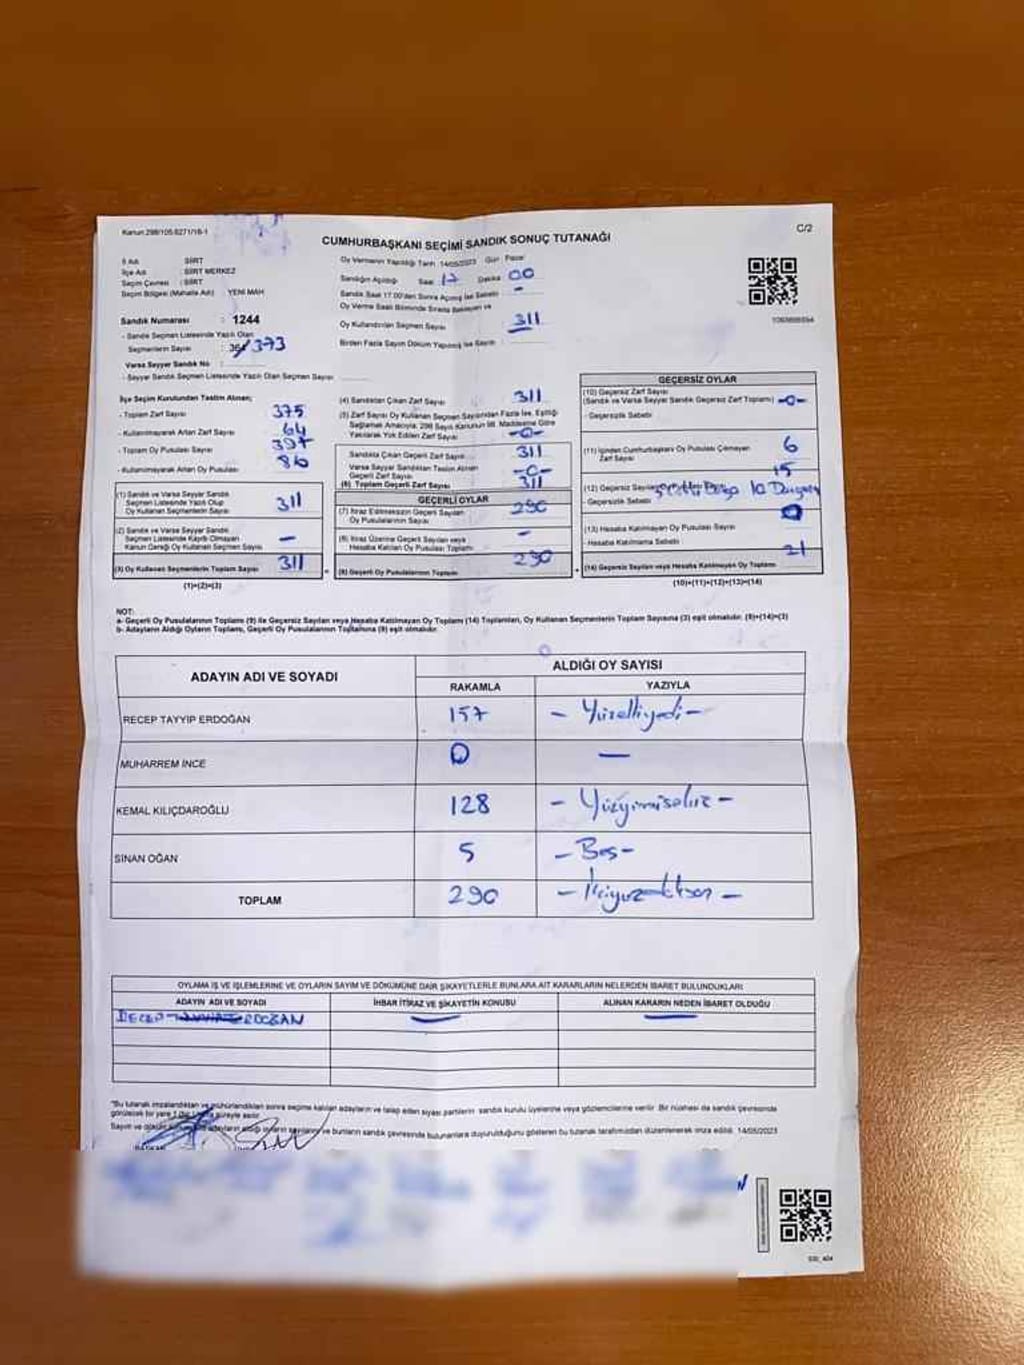 Kanun 298/105-6271/16-1
C/2
CUMHURBAŞKANI SEÇİMİ SANDIK SONUÇ TUTANAĞI
İl Adı : SİİRT
İlçe Adı : SİİRT MERKEZ
Seçim Çevresi : SİİRT
Seçim Bölgesi (Mahalle Adı) : YENİ MAH
Sandık Numarası : 1244
- Sandık Seçmen Listesinde Yazılı Olan
Seçmenlerin Sayısı : 373
Varsa Seyyar Sandık No :
- Seyyar Sandık Seçmen Listesinde Yazılı Olan Seçmen Sayısı
Oy Vermenin Yapıldığı Tarih 14/05/2023 Gün Pazar
Sandığın Açıldığı Saat 17 Dakika 00
Sandık Saat 17.00'den Sonra Açılmış İse Sebebi -
Oy Verme Saati Bitiminde Sırada Bekleyen ve
Oy Kullandırılan Seçmen Sayısı 311
Birden Fazla Sayım Döküm Yapılmış İse Sayısı
İlçe Seçim Kurulundan Teslim Alınan;
- Toplam Zarf Sayısı 375
- Kullanılmayarak Artan Zarf Sayısı 64
- Toplam Oy Pusulası Sayısı 397
- Kullanılmayarak Artan Oy Pusulası 86
(1) Sandık ve Varsa Seyyar Sandık
Seçmen Listesinde Yazılı Olup
Oy Kullanan Seçmenlerin Sayısı 311
(2) Sandık ve Varsa Seyyar Sandık
Seçmen Listesinde Kayıtlı Olmayan
Kanun Gereği Oy Kullanan Seçmen Sayısı -
(3) Oy Kullanan Seçmenlerin Toplam Sayısı 311
(1)+(2)=(3)
(4) Sandıktan Çıkan Zarf Sayısı 311
(5) Zarf Sayısı Oy Kullanan Seçmen Sayısından Fazla İse, Eşitliği
Sağlamak Amacıyla, 298 Sayılı Kanunun 98. Maddesine Göre
Yakılarak Yok Edilen Zarf Sayısı -0-
Sandıkta Çıkan Geçerli Zarf Sayısı 311
Varsa Seyyar Sandıktan Teslim Alınan
Geçerli Zarf Sayısı -0-
(6) Toplam Geçerli Zarf Sayısı 311
GEÇERLİ OYLAR
(7) İtiraz Edilmeksizin Geçerli Sayılan
Oy Pusulalarının Sayısı 290
(8) İtiraz Üzerine Geçerli Sayılan veya
Hesaba Katılan Oy Pusulası Toplamı -
(9) Geçerli Oy Pusulalarının Toplamı 290
GEÇERSİZ OYLAR
(10) Geçersiz Zarf Sayısı
(Sandık ve Varsa Seyyar Sandık Geçersiz Zarf Toplamı) -0-
- Geçersizlik Sebebi
(11) İçinden Cumhurbaşkanı Oy Pusulası Çıkmayan
Zarf Sayısı 6
15
(12) Geçersiz Sayılan
- Geçersizlik Sebebi
0
(13) Hesaba Katılmayan Oy Pusulası Sayısı
- Hesaba Katılmama Sebebi
21
(14) Geçersiz Sayılan veya Hesaba Katılmayan Oy Toplamı
(10)+(11)+(12)+(13)=(14)
NOT:
a- Geçerli Oy Pusulalarının Toplamı (9) ile Geçersiz Sayılan veya Hesaba Katılmayan Oy Toplamı (14) Toplamları, Oy Kullanan Seçmenlerin Toplam Sayısına (3) eşit olmalıdır. (9)+(14)=(3)
b- Adayların Aldığı Oyların Toplamı, Geçerli Oy Pusulalarının Toplamına (9) eşit olmalıdır.
ADAYIN ADI VE SOYADI
ALDIĞI OY SAYISI
RAKAMLA YAZIYLA
RECEP TAYYİP ERDOĞAN 157 - Yüzelliyedi -
MUHARREM İNCE 0 -
KEMAL KILIÇDAROĞLU 128 - Yüzyirmisekiz -
SİNAN OĞAN 5 - Beş -
TOPLAM 290 - İkiyüzdoksan -
OYLAMA İŞ VE İŞLEMLERİNE VE OYLARIN SAYIM VE DÖKÜMÜNE DAİR ŞİKAYETLERLE BUNLARA AİT KARARLARIN NELERDEN İBARET BULUNDUKLARI
ADAYIN ADI VE SOYADI İHBAR İTİRAZ VE ŞİKAYETİN KONUSU ALINAN KARARIN NEDEN İBARET OLDUĞU
RECEP TAYYİP ERDOĞAN - -
"Bu tutanak imzalandıktan ve mühürlendikten sonra seçime katılan adayların ve talep eden siyasi partilerin sandık kurulu üyelerine veya gözlemcilerine verilir. Bir nüshası da sandık çevresinde
görülecek bir yere
Sayım ve döküm bunların sandık çevresinde bulunanlara duyurulduğunu gösteren bu tutanak tarafımızdan düzenlenerek imza edildi. 14/05/2023